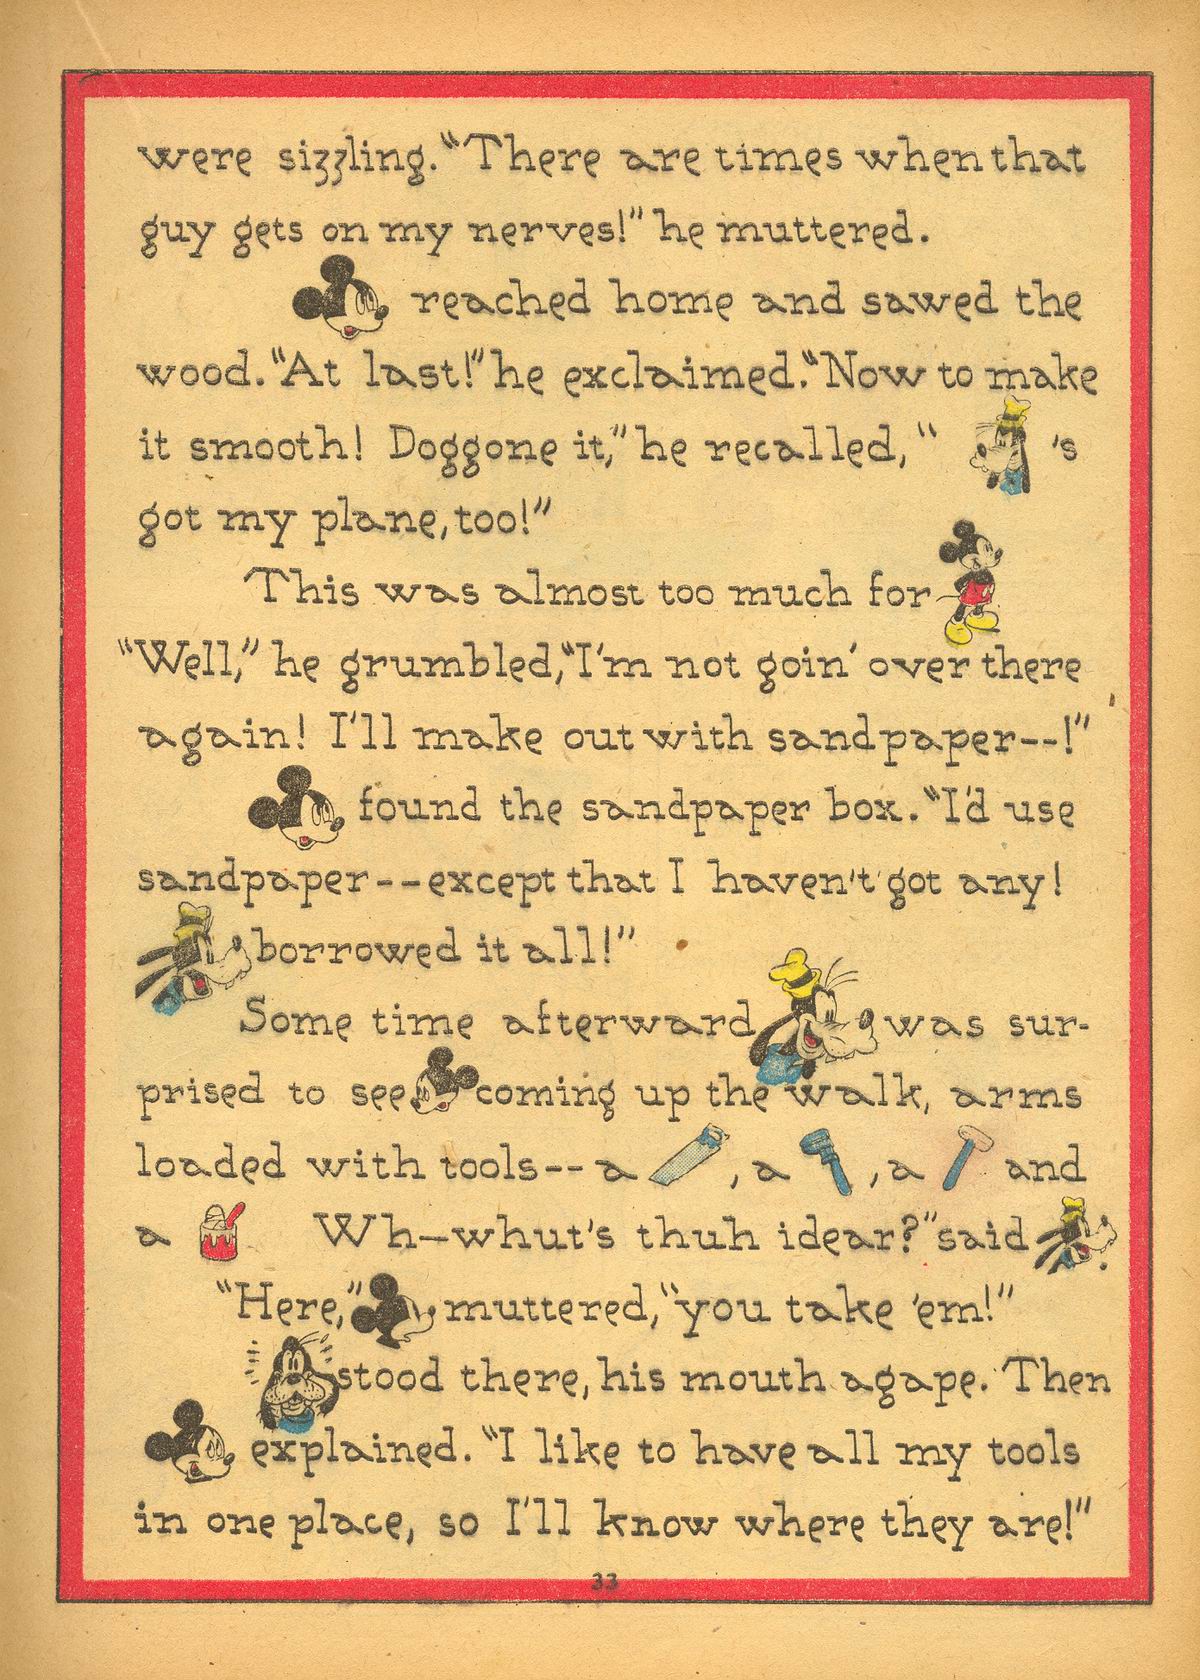 were sizzling. "There are times when that
guy gets on my nerves!" he muttered.
reached home and sawed the
wood. "At last!" he exclaimed. "Now to make
it smooth! Doggone it," he recalled, " 's
got my plane, too!"
This was almost too much for
"Well," he grumbled, "I'm not goin' over there
again! I'll make out with sandpaper--!"
found the sandpaper box. "I'd use
sandpaper--except that I haven't got any!
borrowed it all!"
Some time afterward was sur-
prised to see coming up the walk, arms
loaded with tools--a , a , a and
a Wh—whut's thuh idear?" said
"Here," muttered, "you take 'em!"
stood there, his mouth agape. Then
explained. "I like to have all my tools
in one place, so I'll know where they are!"
33